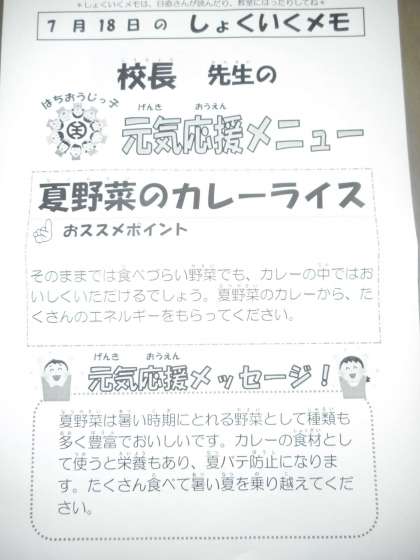 *しょくいくメモは、日直さんが読んだり、教室にはったりしてね*
7月18日の しょくいくメモ
校長 先生の
はちおうじっ子
げんき おうえん
元気応援メニュー
夏野菜のカレーライス
おススメポイント
そのままでは食べづらい野菜でも、カレーの中ではお
いしくいただけるでしょう。夏野菜のカレーから、た
くさんのエネルギーをもらってください。
げんき おうえん
元気応援メッセージ!
夏野菜は暑い時期にとれる野菜として種類も
多く豊富でおいしいです。カレーの食材とし
て使うと栄養もあり、夏バテ防止になりま
す。たくさん食べて暑い夏を乗り越えてくだ
さい。